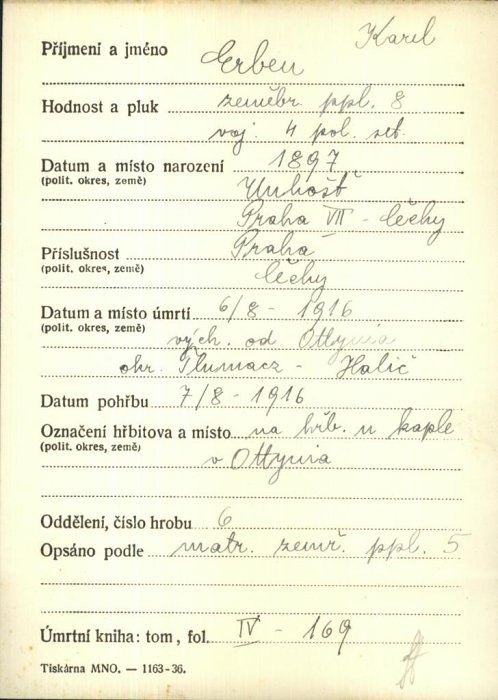 Karel
Příjmení a jméno Erben
Hodnost a pluk zeměbr. ppl. 8
voj. 4 pol. set.
Datum a místo narození 1897
(polit. okres, země) Unhošť
Praha VII - Čechy
Příslušnost Praha
(polit. okres, země) Čechy
Datum a místo úmrtí 6/8 - 1916
(polit. okres, země) vých. od Ottynia
okr. Tlumacz - Halič
Datum pohřbu 7/8 - 1916
Označení hřbitova a místo na hřb. u kaple
(polit. okres, země) v Ottynia
Oddělení, číslo hrobu 6
Opsáno podle matr. zemř. ppl. 5
Úmrtní kniha: tom, fol. IV - 169
Tiskárna MNO. — 1163-36.